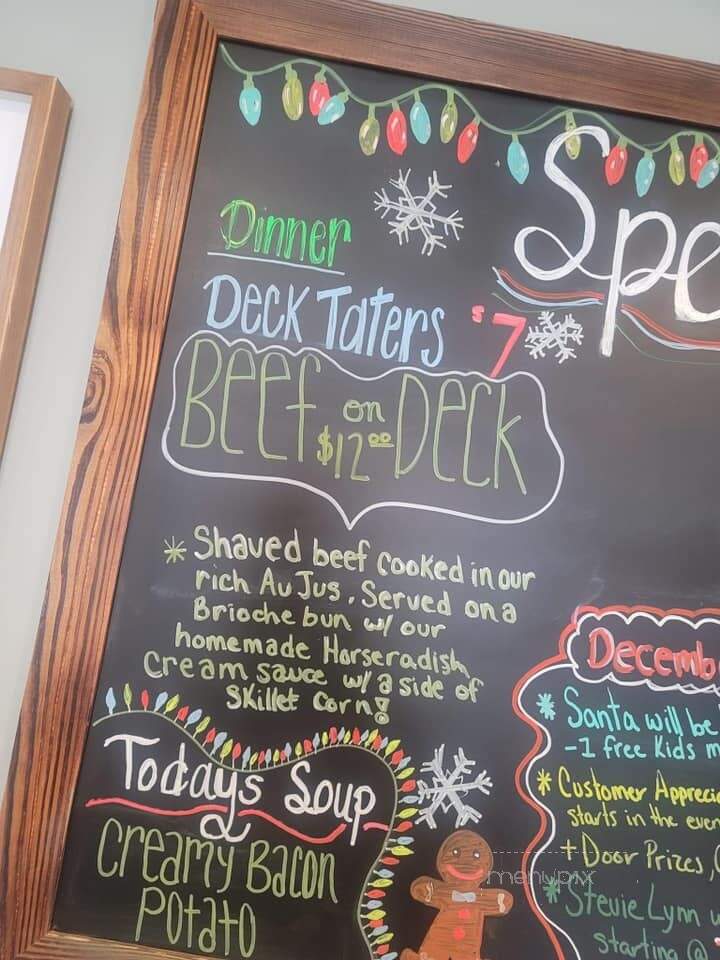 Spe
Dinner
Deck Taters $7
Beef on Deck
$12.00
* Shaved beef cooked in our
rich Au Jus. Served on a
Brioche bun w/ our
homemade Horseradish
Cream sauce w/ a side of
Skillet Corn!
Todays Soup
Creamy Bacon
Potato
Decemb
* Santa will be
-1 free Kids m
* Customer Apprecia
starts in the even
+ Door Prizes,
* Stevie Lynn w
starting @
menupix